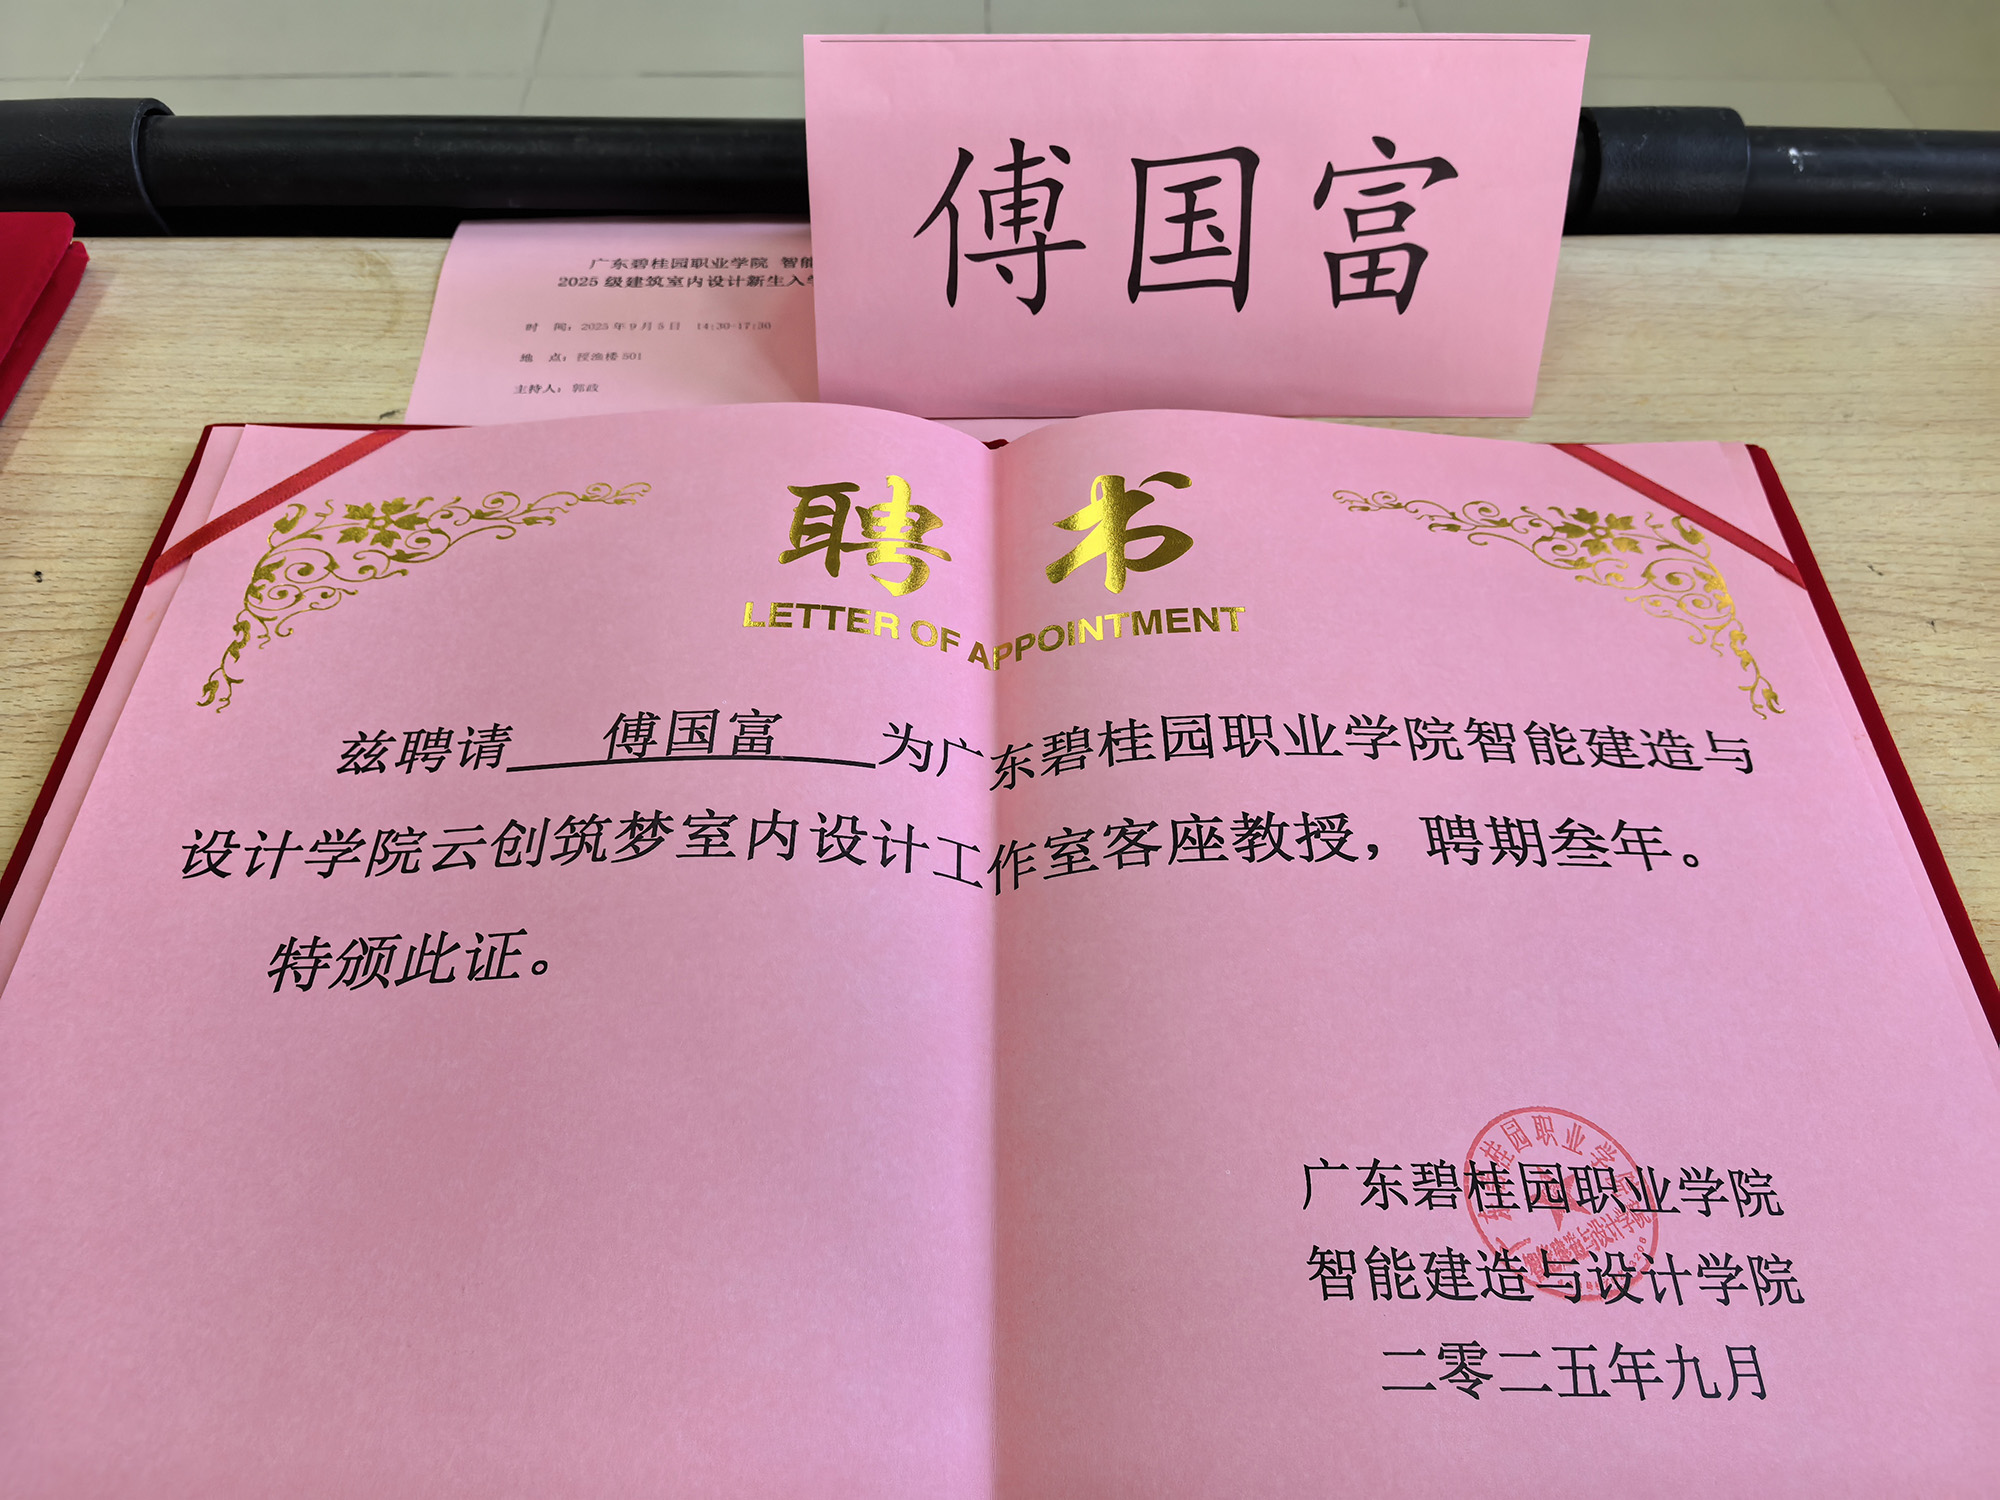 傅国富
广东碧桂园职业学院 智能
2025 级建筑室内设计新生入学
时 间：2025 年 9 月 5 日 14:30-17:30
地 点：授渔楼 501
主持人：郭政
聘书
LETTER OF APPOINTMENT
兹聘请 傅国富 为广东碧桂园职业学院智能建造与
设计学院云创筑梦室内设计工作室客座教授，聘期叁年。
特颁此证。
广东碧桂园职业学院
智能建造与设计学院
二零二五年九月
桂园职业学院
智能建造与设计学院